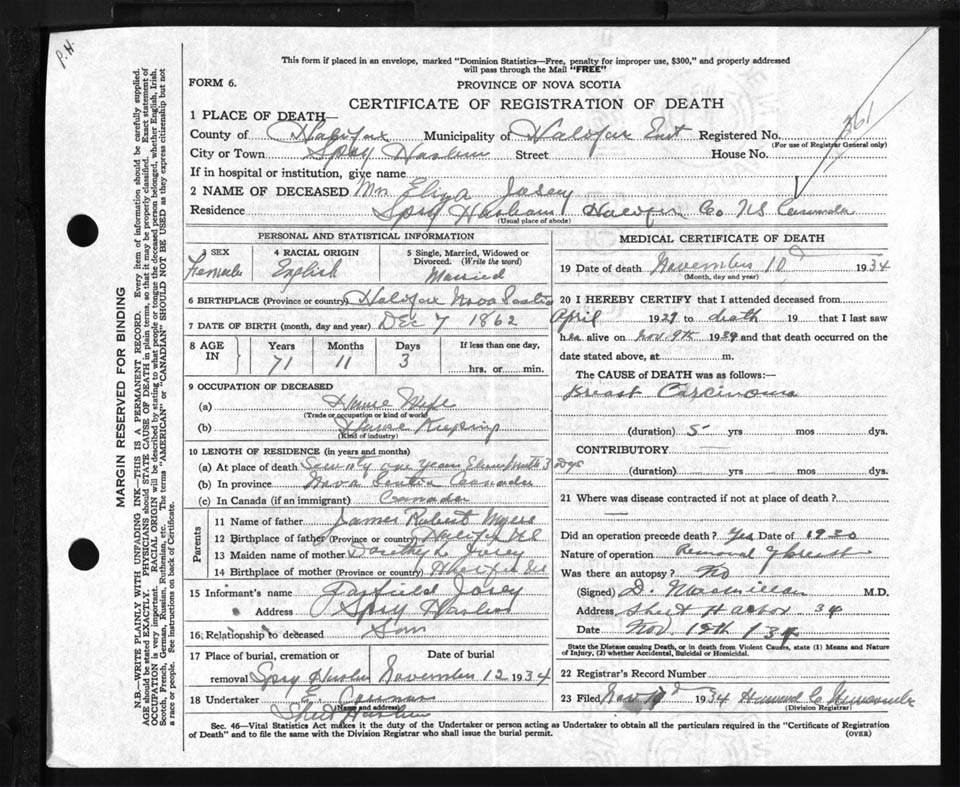 P.H.
This form if placed in an envelope, marked "Dominion Statistics—Free, penalty for improper use, $300," and properly addressed
will pass through the Mail "FREE"
FORM 6.
PROVINCE OF NOVA SCOTIA
CERTIFICATE OF REGISTRATION OF DEATH
1 PLACE OF DEATH—
County of Halifax Municipality of Halifax East Registered No. 361
(For use of Registrar General only)
City or Town Spry Harbour Street House No.
If in hospital or institution, give name
2 NAME OF DECEASED Mrs. Eliza Josey
Residence Spry Harbour Halifax Co NS Canada
(Usual place of abode)
PERSONAL AND STATISTICAL INFORMATION
3 SEX Female
4 RACIAL ORIGIN English
5 Single, Married, Widowed or Divorced. (Write the word) Married
6 BIRTHPLACE (Province or country) Halifax Nova Scotia
7 DATE OF BIRTH (month, day and year) Dec 7 1862
8 AGE IN Years 71 Months 11 Days 3 If less than one day, hrs. or min.
9 OCCUPATION OF DECEASED
(a) House Wife
(Trade or occupation or kind of work)
(b) House Keeping
(Kind of industry)
10 LENGTH OF RESIDENCE (in years and months)
(a) At place of death Seventy one years 3 Dys
(b) In province Nova Scotia Canada
(c) In Canada (if an immigrant) Canada
Parents
11 Name of father James Robert Myers
12 Birthplace of father (Province or country) Halifax N S
13 Maiden name of mother Dorothy L Josey
14 Birthplace of mother (Province or country) Halifax
15 Informant's name Garfield Josey
Address Spry Harbour
16 Relationship to deceased Son
17 Place of burial, cremation or removal Spry Harbour Date of burial November 12 1934
18 Undertaker E
(Name and address)
Sheet Harbour
MEDICAL CERTIFICATE OF DEATH
19 Date of death November 10 1934
(Month, day and year)
20 I HEREBY CERTIFY that I attended deceased from
April 1929 to death 19 that I last saw
her alive on Nov. 9th 1934 and that death occurred on the
date stated above, at m.
The CAUSE of DEATH was as follows:—
Breast Carcinoma
(duration) 5 yrs mos dys.
CONTRIBUTORY
(duration) yrs mos dys.
21 Where was disease contracted if not at place of death?
Did an operation precede death? Yes Date of 1930
Nature of operation Removal of breast
Was there an autopsy? No
(Signed) D. Macmillan M.D.
Address Sheet Harbor 34
Date Nov. 15th 134
State the Disease causing Death, or in death from Violent Causes, state (1) Means and Nature
of Injury, (2) whether Accidental, Suicidal or Homicidal.
22 Registrar's Record Number
23 Filed Nov 1934 Howard
(Division Registrar)
Sec. 46—Vital Statistics Act makes it the duty of the Undertaker or person acting as Undertaker to obtain all the particulars required in the "Certificate of Registration
of Death" and to file the same with the Division Registrar who shall issue the burial permit.
(OVER)
MARGIN RESERVED FOR BINDING
N.B.—WRITE PLAINLY WITH UNFADING INK—THIS IS A PERMANENT RECORD. Every item of information should be carefully supplied.
AGE should be stated EXACTLY. PHYSICIANS should STATE CAUSE OF DEATH in plain terms, so that it may be properly classified. Exact statement of
OCCUPATION is very important. RACIAL ORIGIN will be described by stating to what people or tongue the deceased person belonged, whether English, Irish,
Scotch, French, German, Russian, Ruthenian, etc. The terms "AMERICAN" or "CANADIAN" SHOULD NOT BE USED as they express citizenship but not
a race or people. See instructions on back of Certificate.